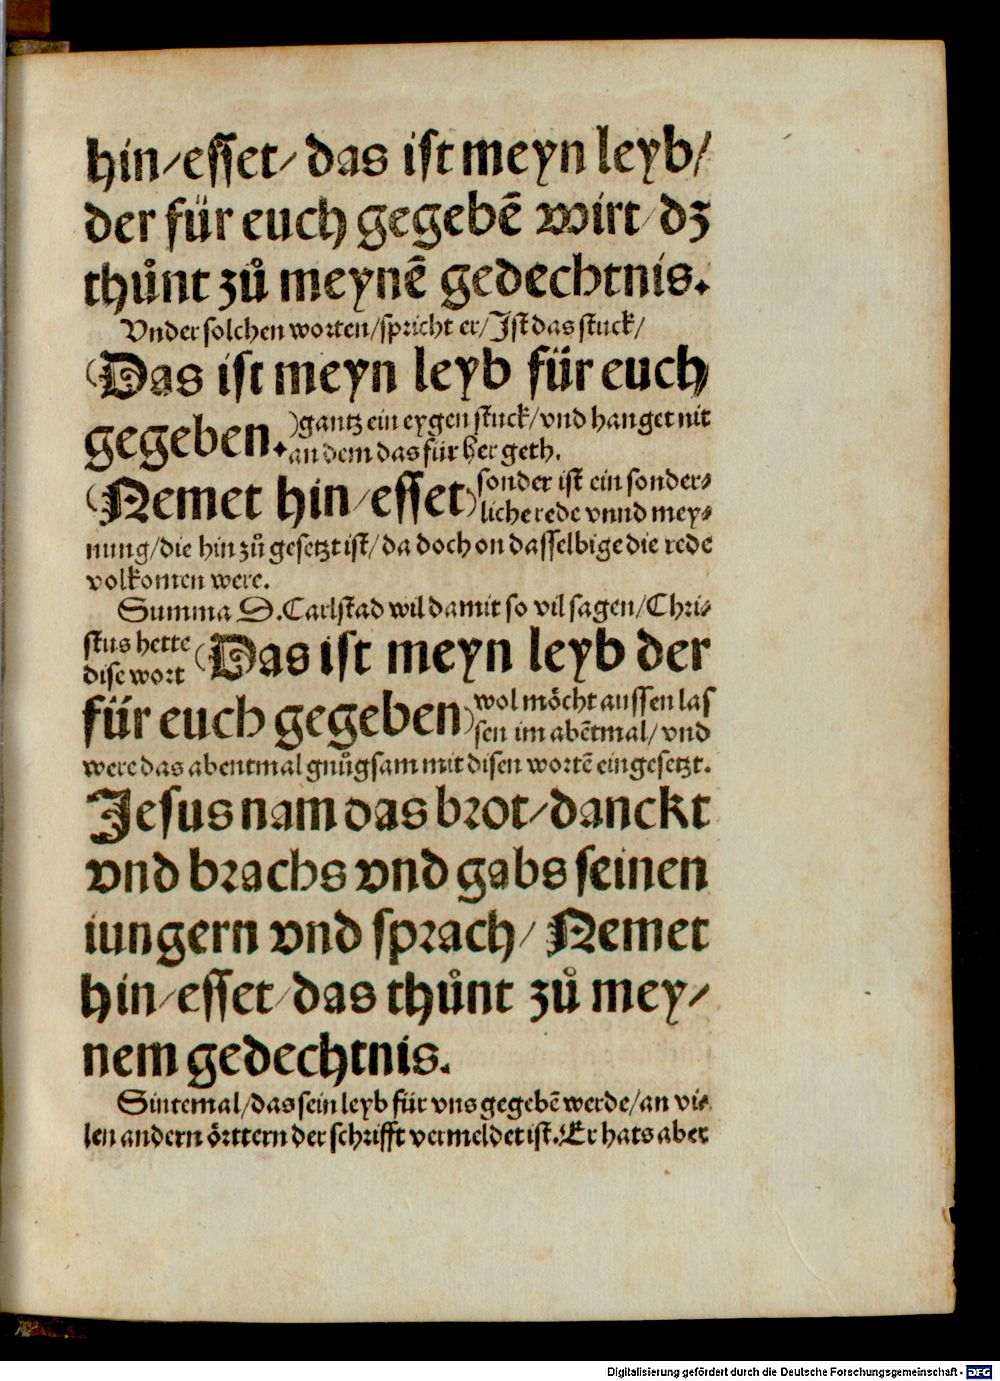 hin/esset/das ist meyn leyb/
der für euch gegebē wirt/dʒ
thůnt zů meynē gedechtnis.
Vnder solchen worten/spricht er/Jst das stuck/
(Das ist meyn leyb für euch
gegeben.)gantz ein eygen stuck/vnd hanget nit
an dem das für her geth.
(Nemet hin/esset)sonder ist ein sonder-
liche rede vnnd mey-
nung/die hin zů gesetzt ist/da doch on dasselbige die rede
volkomen were.
Summa D.Carlstad wil damit so vil sagen/Chri-
stus hette
dise wort (Das ist meyn leyb der
für euch gegeben)wol möcht aussen las
sen im abētmal/vnd
were das abentmal gnůgsam mit disen wortē eingesetzt.
Jesus nam das brot/danckt
vnd brachs vnd gabs seinen
iungern vnd sprach/Nemet
hin/esset/das thůnt zů mey-
nem gedechtnis.
Sintemal/das sein leyb für vns gegebē werde/an vi-
len andern örttern der schrifft vermeldet ist.Er hats aber
Digitalisierung gefördert durch die Deutsche Forschungsgemeinschaft - DFG